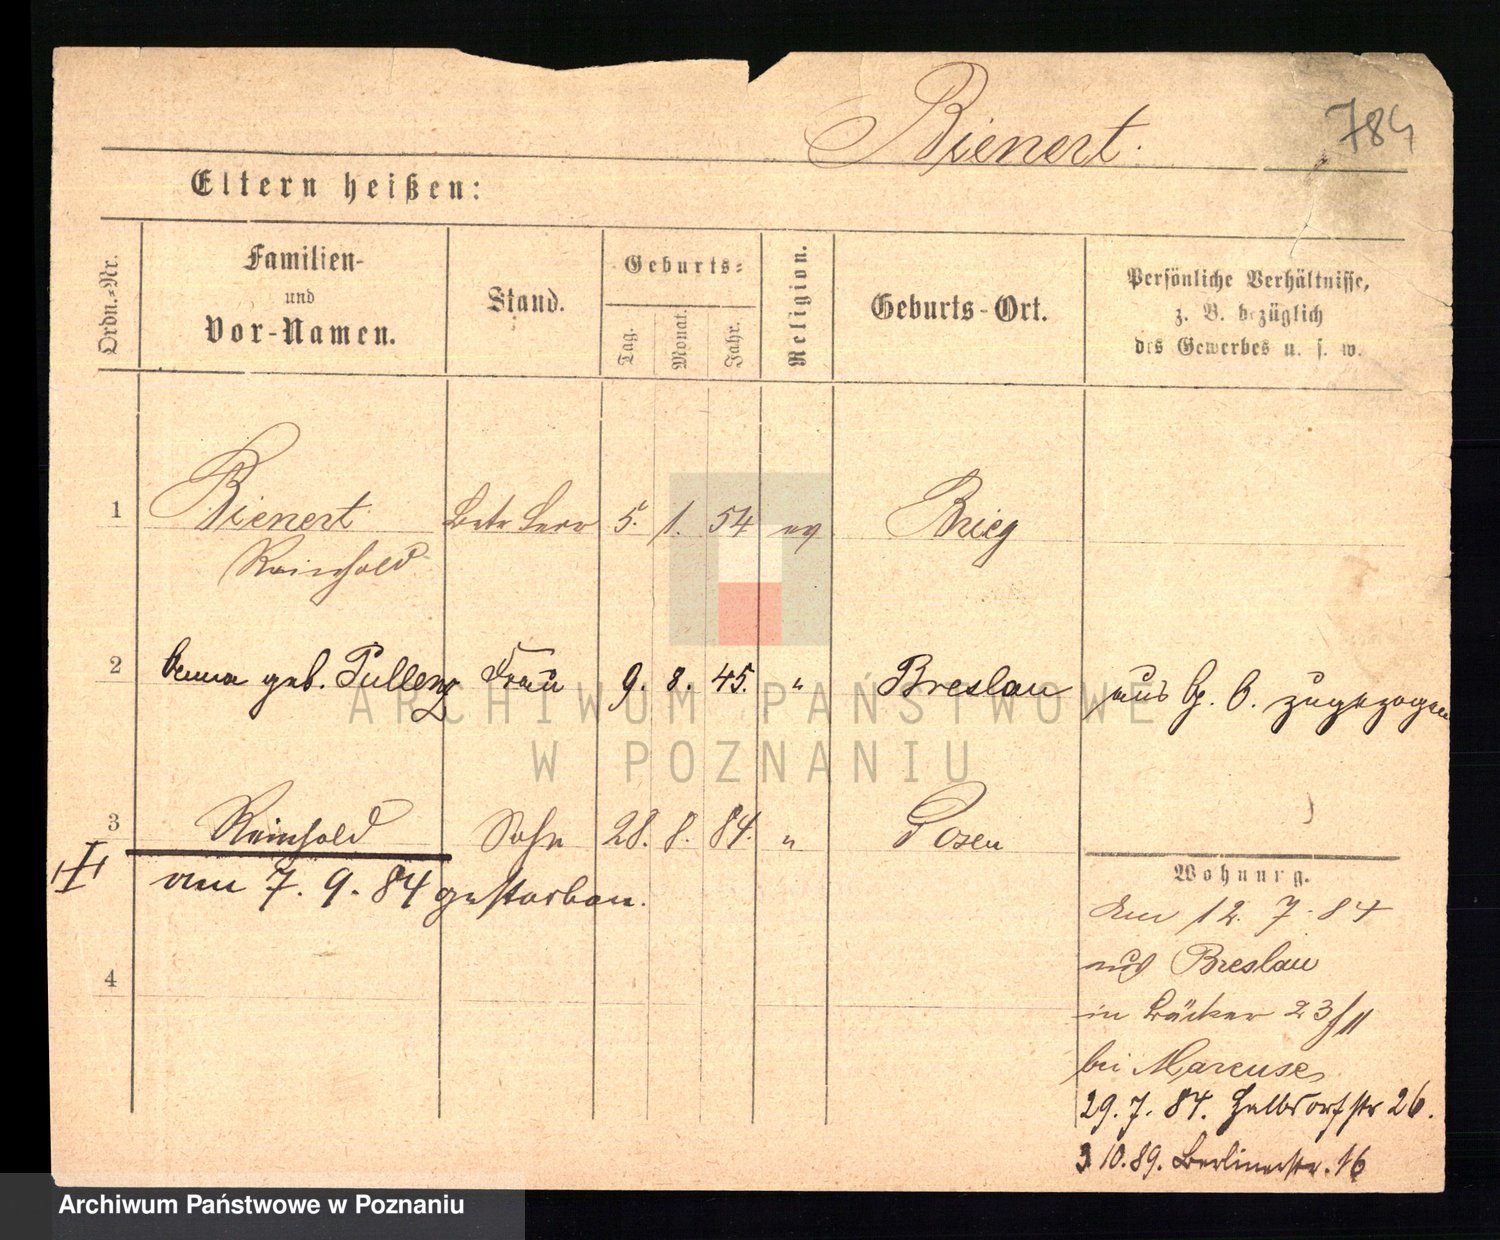 Bienert.
784
Eltern heißen:
Ordn.=Nr.
Familien-
und
Vor-Namen.
Stand.
Geburts=
Tag.
Monat.
Jahr.
Religion.
Geburts-Ort.
Persönliche Verhältnisse,
z. B. bezüglich
des Gewerbes u. s. w.
1 Bienert 5. 1. 54 ev Brieg
Reinhold
2 geb. Frau 9. 8. 45. " Breslau aus zugezogen
3 Reinhold Sohn 28. 8. 84. " Posen
am 7. 9. 84 gestorben.
4
Wohnung.
Am 12. 7. 84
aus Breslau
in Bäcker 23/II
bei Marcuse
29. 7. 84. Halbdorfstr 26.
3 10. 89. Berlinerstr. 16
ARCHIWUM PAŃSTWOWE
W POZNANIU
Archiwum Państwowe w Poznaniu